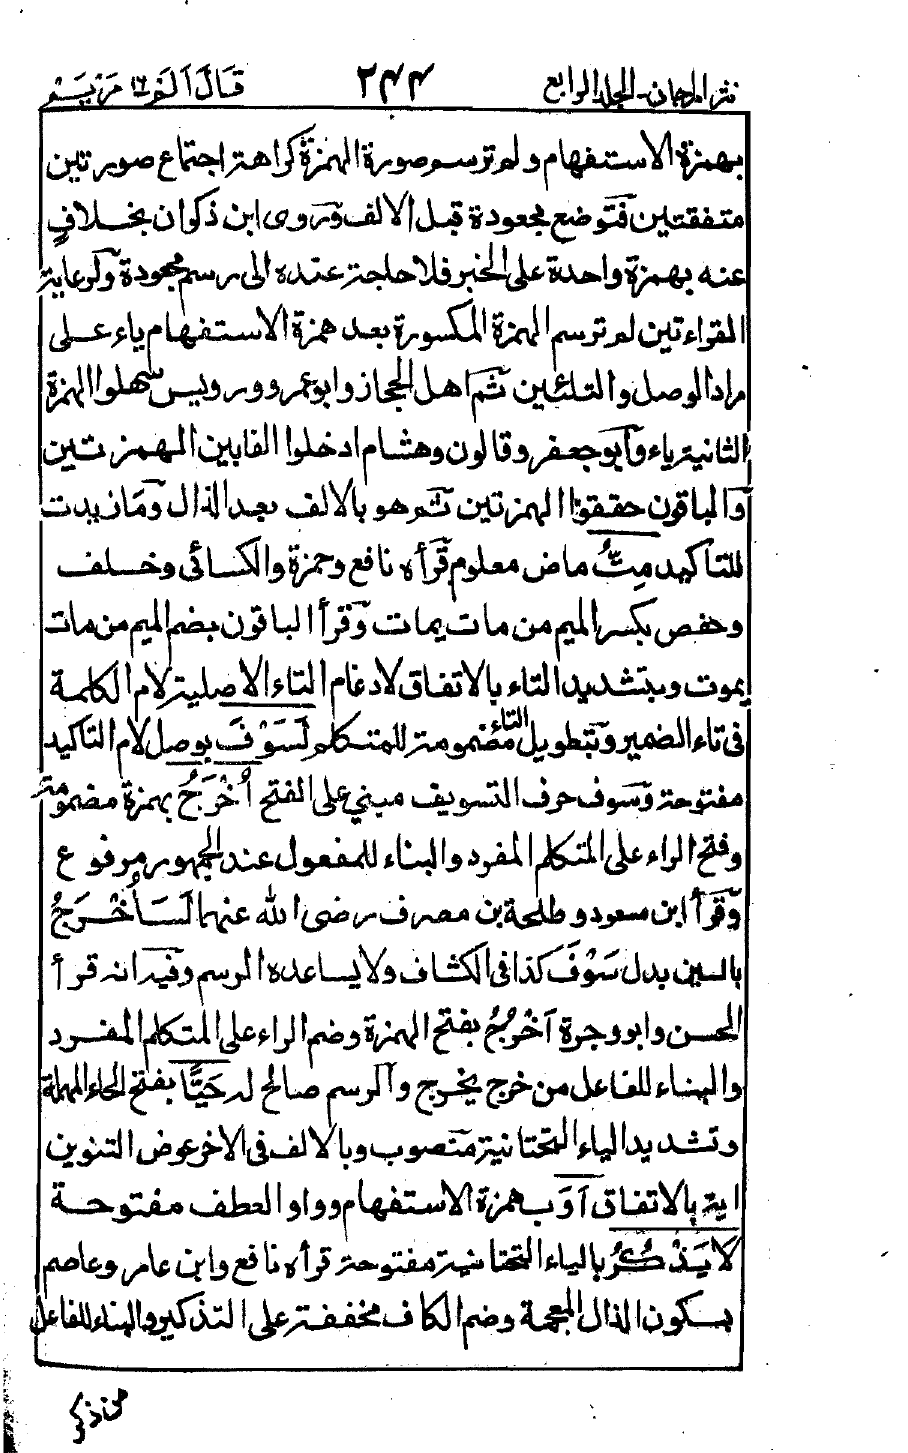 نثر المرجان-المجلد الرابع ٢٤٤ قَالَ اَلَمۡ ١٦ مَرۡيَمۡ
بهمزة الاستفهام ولم ترسم صورة الهمزة كراهة اجتماع صورتين
متفقتين فتوضع مجعودة قبل الالف وروى ابن ذكوان بخلافٍ
عنه بهمزة واحدة على الخبر فلا حاجة عنده الى رسم مجعودة ولرعاية
القراءتين لم ترسم الهمزة المكسورة بعد همزة الاستفهام ياء على
مراد الوصل والتلئين ثم اهل الحجاز وابو عمرو ورويس سهلوا الهمزة
الثانية ياء وابو جعفر وقالون وهشام ادخلوا الفا بين الهمزتين
والباقون حققوا الهمزتين ثم هو بالالف بعد الذال وما زيدت
للتاكيد مِتُّ ماض معلوم قرأه نافع وحمزة والكسائى وخلف
وحفص بكسر الميم من مات يمات وقرأ الباقون بضم الميم من مات
يموت وبتشديد التاء بالاتفاق لادغام التاء الاصلية لام الكلمة
فى تاء الضمير وبتطويل التاء مضمومة للمتكلم لَسَوۡفَ بوصل لام التاكيد
مفتوحة وسوف حرف التسويف مبني على الفتح اُخۡرَجُ بهمزة مضمومة
وفتح الراء على المتكلم المفرد والبناء للمفعول عند الجمهور مرفوع
وقرأ ابن مسعود وطلحة بن مصرف رضى الله عنهما لَسَاُخۡرَجُ
بالسين بدل سَوۡفَ كذا فى الكشاف ولا يساعده الرسم وفيه انه قرأ
الحسن وابو وجرة اَخۡرُجُ بفتح الهمزة وضم الراء على المتكلم المفرد
والبناء للفاعل من خرج يخرج والرسم صالح له حَيًّا بفتح الحاء المهملة
وتشديد الياء التحتانية منصوب وبالالف فى الاخر عوض التنوين
اية بالاتفاق اَوَ بهمزة الاستفهام وواو العطف مفتوحة
لَا يَذۡكُرُ بالياء التحتانية مفتوحة قرأه نافع وابن عامر وعاصم
بسكون الذال المعجمة وضم الكاف مخففة على التذكير والبناء للفاعل